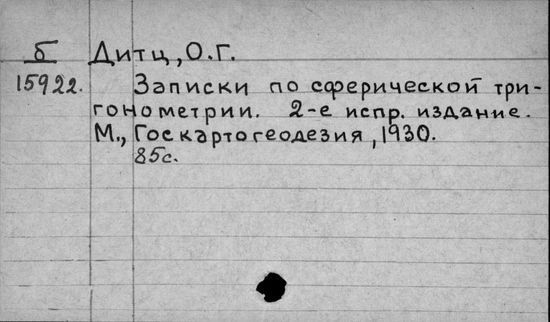 б Дитц, О.Г.
15922. Записки по сферической три-
гонометрии. 2-е испр. издание.
М., Госкартогеодезия, 1930.
85с.